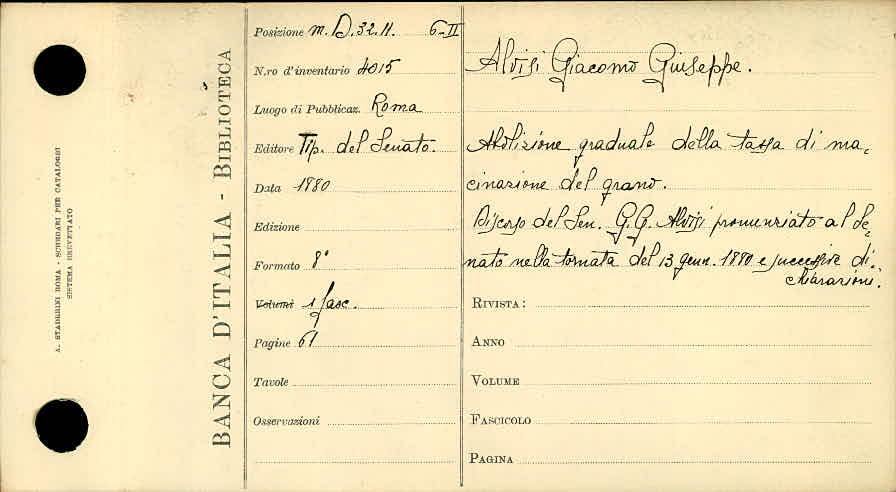 A. STADERINI ROMA - SCHEDARI PER CATALOGHI
SISTEMA BREVETTATO
BANCA D'ITALIA - BIBLIOTECA
Posizione m. D. 32. 11. 6-II
N.ro d'inventario 4015
Luogo di Pubblicaz. Roma
Editore Tip. del Senato.
Data 1880
Edizione
Formato 8°
Volumi 1 fasc.
Pagine 61
Tavole
Osservazioni
Alvisi Giacomo Giuseppe.
Abolizione graduale della tassa di ma,
cinazione del grano.
Discorso del Sen. G. G. Alvisi pronunziato al Se,
nato nella tornata del 13 genn. 1880 e successive di,
chiarazioni.
RIVISTA:
ANNO
VOLUME
FASCICOLO
PAGINA